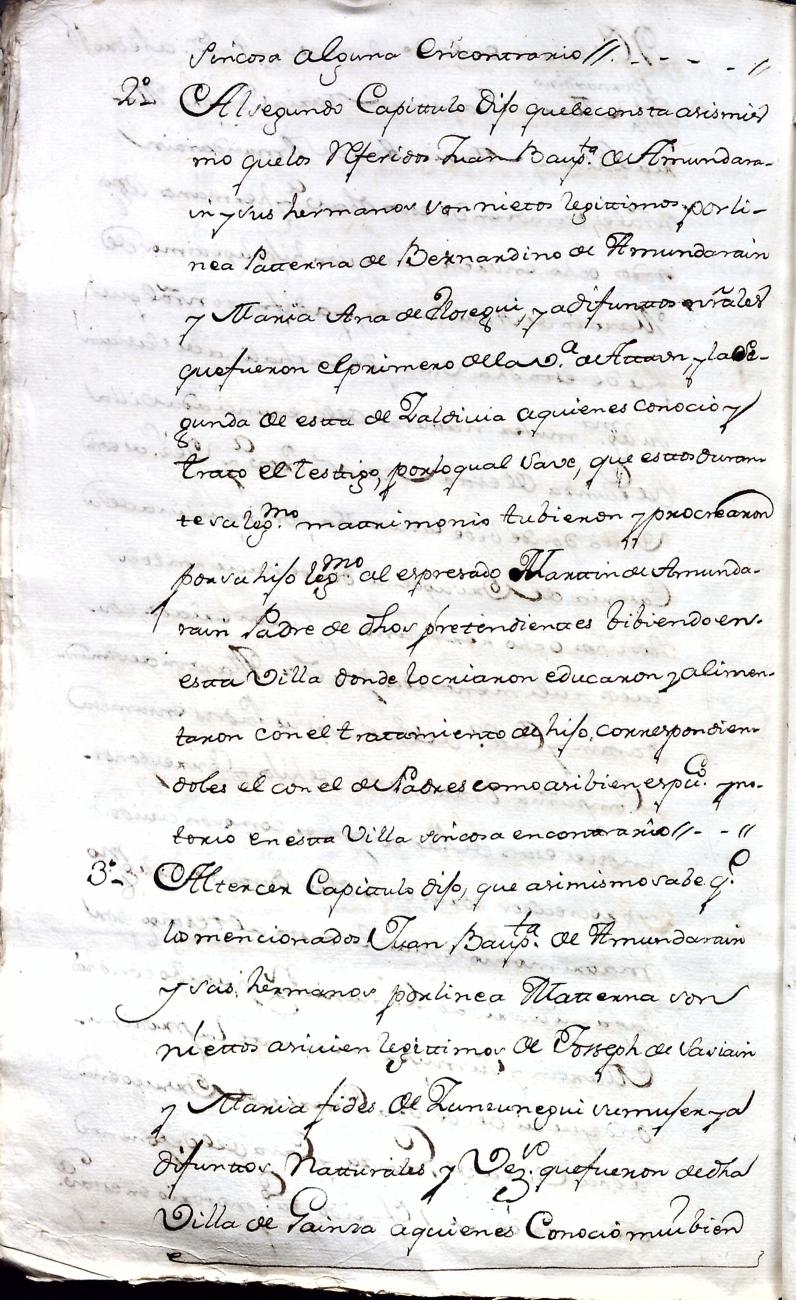 sin cosa alguna en contrario //. - - - - //
2º Al segundo Capittulo dijo que le consta asimis
mo que los Referidos Juan Baupta. de Amundara-
in y sus hermanos son nietos legittimos por li-
nea Patterna de Bernardino de Amundarain
y Maria Ana de Elosegui, ya difunttos nrales
que fueron el primero de la Va. de Attaun, y la se-
gunda de estta de Zaldivia a quienes conocio y
trato el testtigo, por lo qual save, que esttos duran-
te su legmo. mattrimonio tubieron y procrearon
por su hijo legmo. al espresado Marttin de Amunda-
rain Padre de dhos pretendienttes bibiendo en-
estta Villa donde lo criaron educaron y alimen-
taron con el trattamiento de hijo, correspondien-
doles el con el de Padres como asibien es puco. y no-
torio en estta Villa sin cosa en contrario // - - //
3º Al tercer Capittulo dijo, que asimismo sabe qe.
lo mencionados Juan Baupta. de Amundarain
y sus hermanos por linea Matterna son
niettos asivien legittimos de Josseph de Sasiain
y Maria fides de Zunzunegui su mujer ya
difunttos, Natturales, y Vezos. que fueron de dha
Villa de Gainza a quienes Conocio mui bien